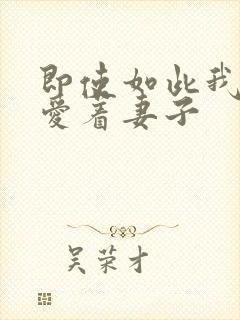 即使如此我
愛着妻子
吴荣才